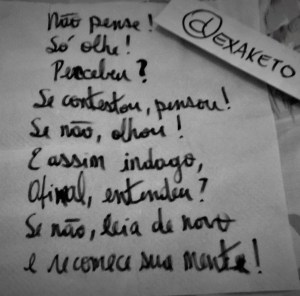 Não pense!
@EXAKETO
Só olhe!
Percebeu?
Se contestou, pensou!
Se não, olhou!
E assim indago,
Afinal, entendeu?
Se não, leia de novo
e recomece sua mente!